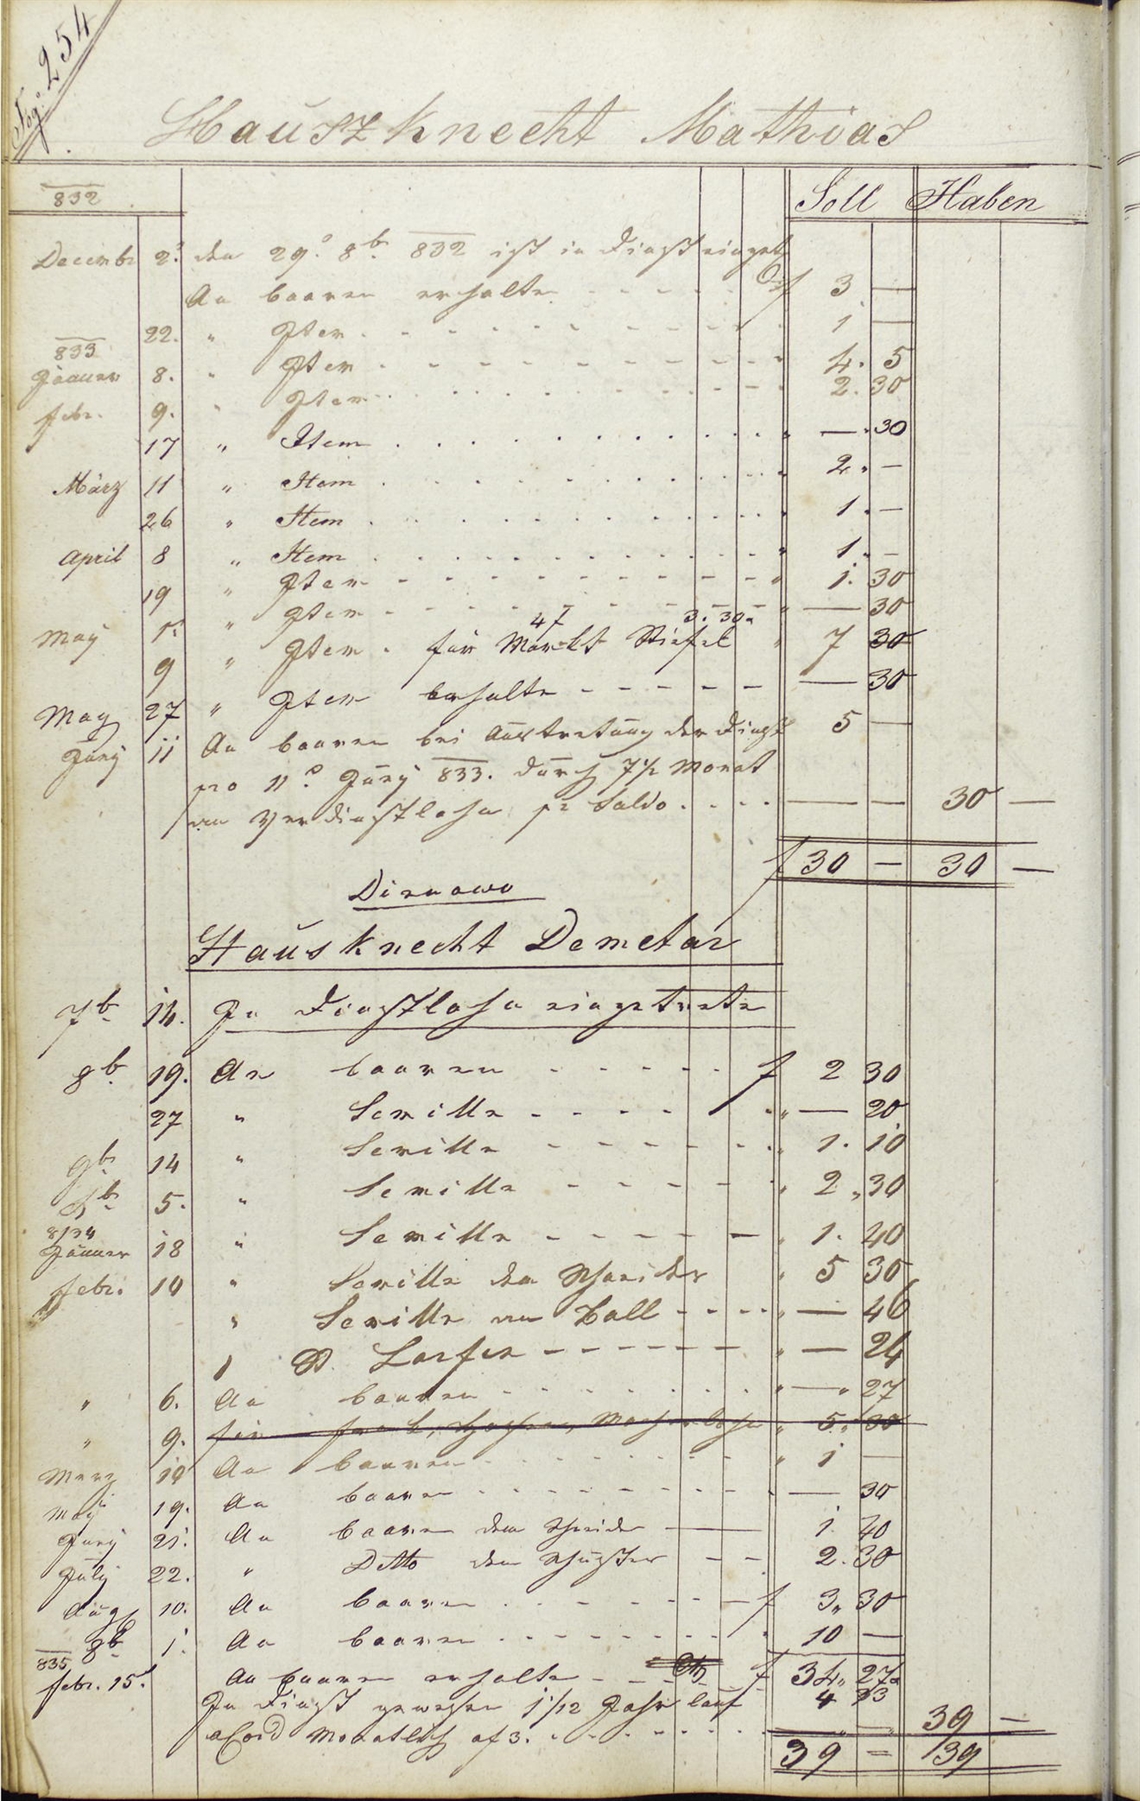 Fog: 254
Hauszknecht Mathias
832 Soll Haben
Decembr 2. den 29. 8b. 832 ist in Dienst eingets
An baaren erhalte - - - - - f 3 —
22. " Iter - - - - 1 —
833
Jäauer 8. " Iter - - - - 4. 5
febr. 9. " Iter - - - - 2. 30
17 " Item . . . . — 30
März 11 " Item . . . . 2. —
26 " Item . . . . 1. —
April 8 " Item . . . . 1. —
19 " Iter - - - - 1. 30
" Iter - - - - — 30
47 3. 30
May 1. " Iter . für Markt Stiefel " 7 30
9 " Iter erhalte - - - - — 30
May 27 " An baaren bei Austretung der Dienst 5 —
Juny 11 pro 11. Juny 833. durch 7 1/2 Monat
an Verdienstlohn pr Saldo . . . . — — 30 —
f 30 — 30 —
Hausknecht Demetar
7b 14. In Dienstlohn eingetrete
8b. 19. An baaren - - - - f 2 30
27 " Semille - - - - " — 20
9b. 14 " Semille - - - - 1. 10
5. " Semille - - - - " 2 " 30
834
Jäauer 18 " Semille - - - - 1. 40
febr. 10 " Semille dem Schneider " 5 30
" Semille am Ball - - - - " — 46
- - - - " — 24
" 6. An baaren - - - - " — " 27
" 9. für 5. 30
Merz 10 An baaren - - - - " 1 —
May 19. An baaren - - - - — 30
Juny 21. An baaren dem Schneider — 1. 40
July 22. " Ditto dem Schuster - - 2. 30
Aug 10. An baaren - - - - f 3 " 30
8b 1. An baaren - - - - 10 —
835
febr. 15. An baaren erhalte - - - f 34 " 27
In Dienst gewesen 1 1/12 Jahr lauf 4 33
acord Monatlich af 3. - - - - — — 39 —
39 = 39 —